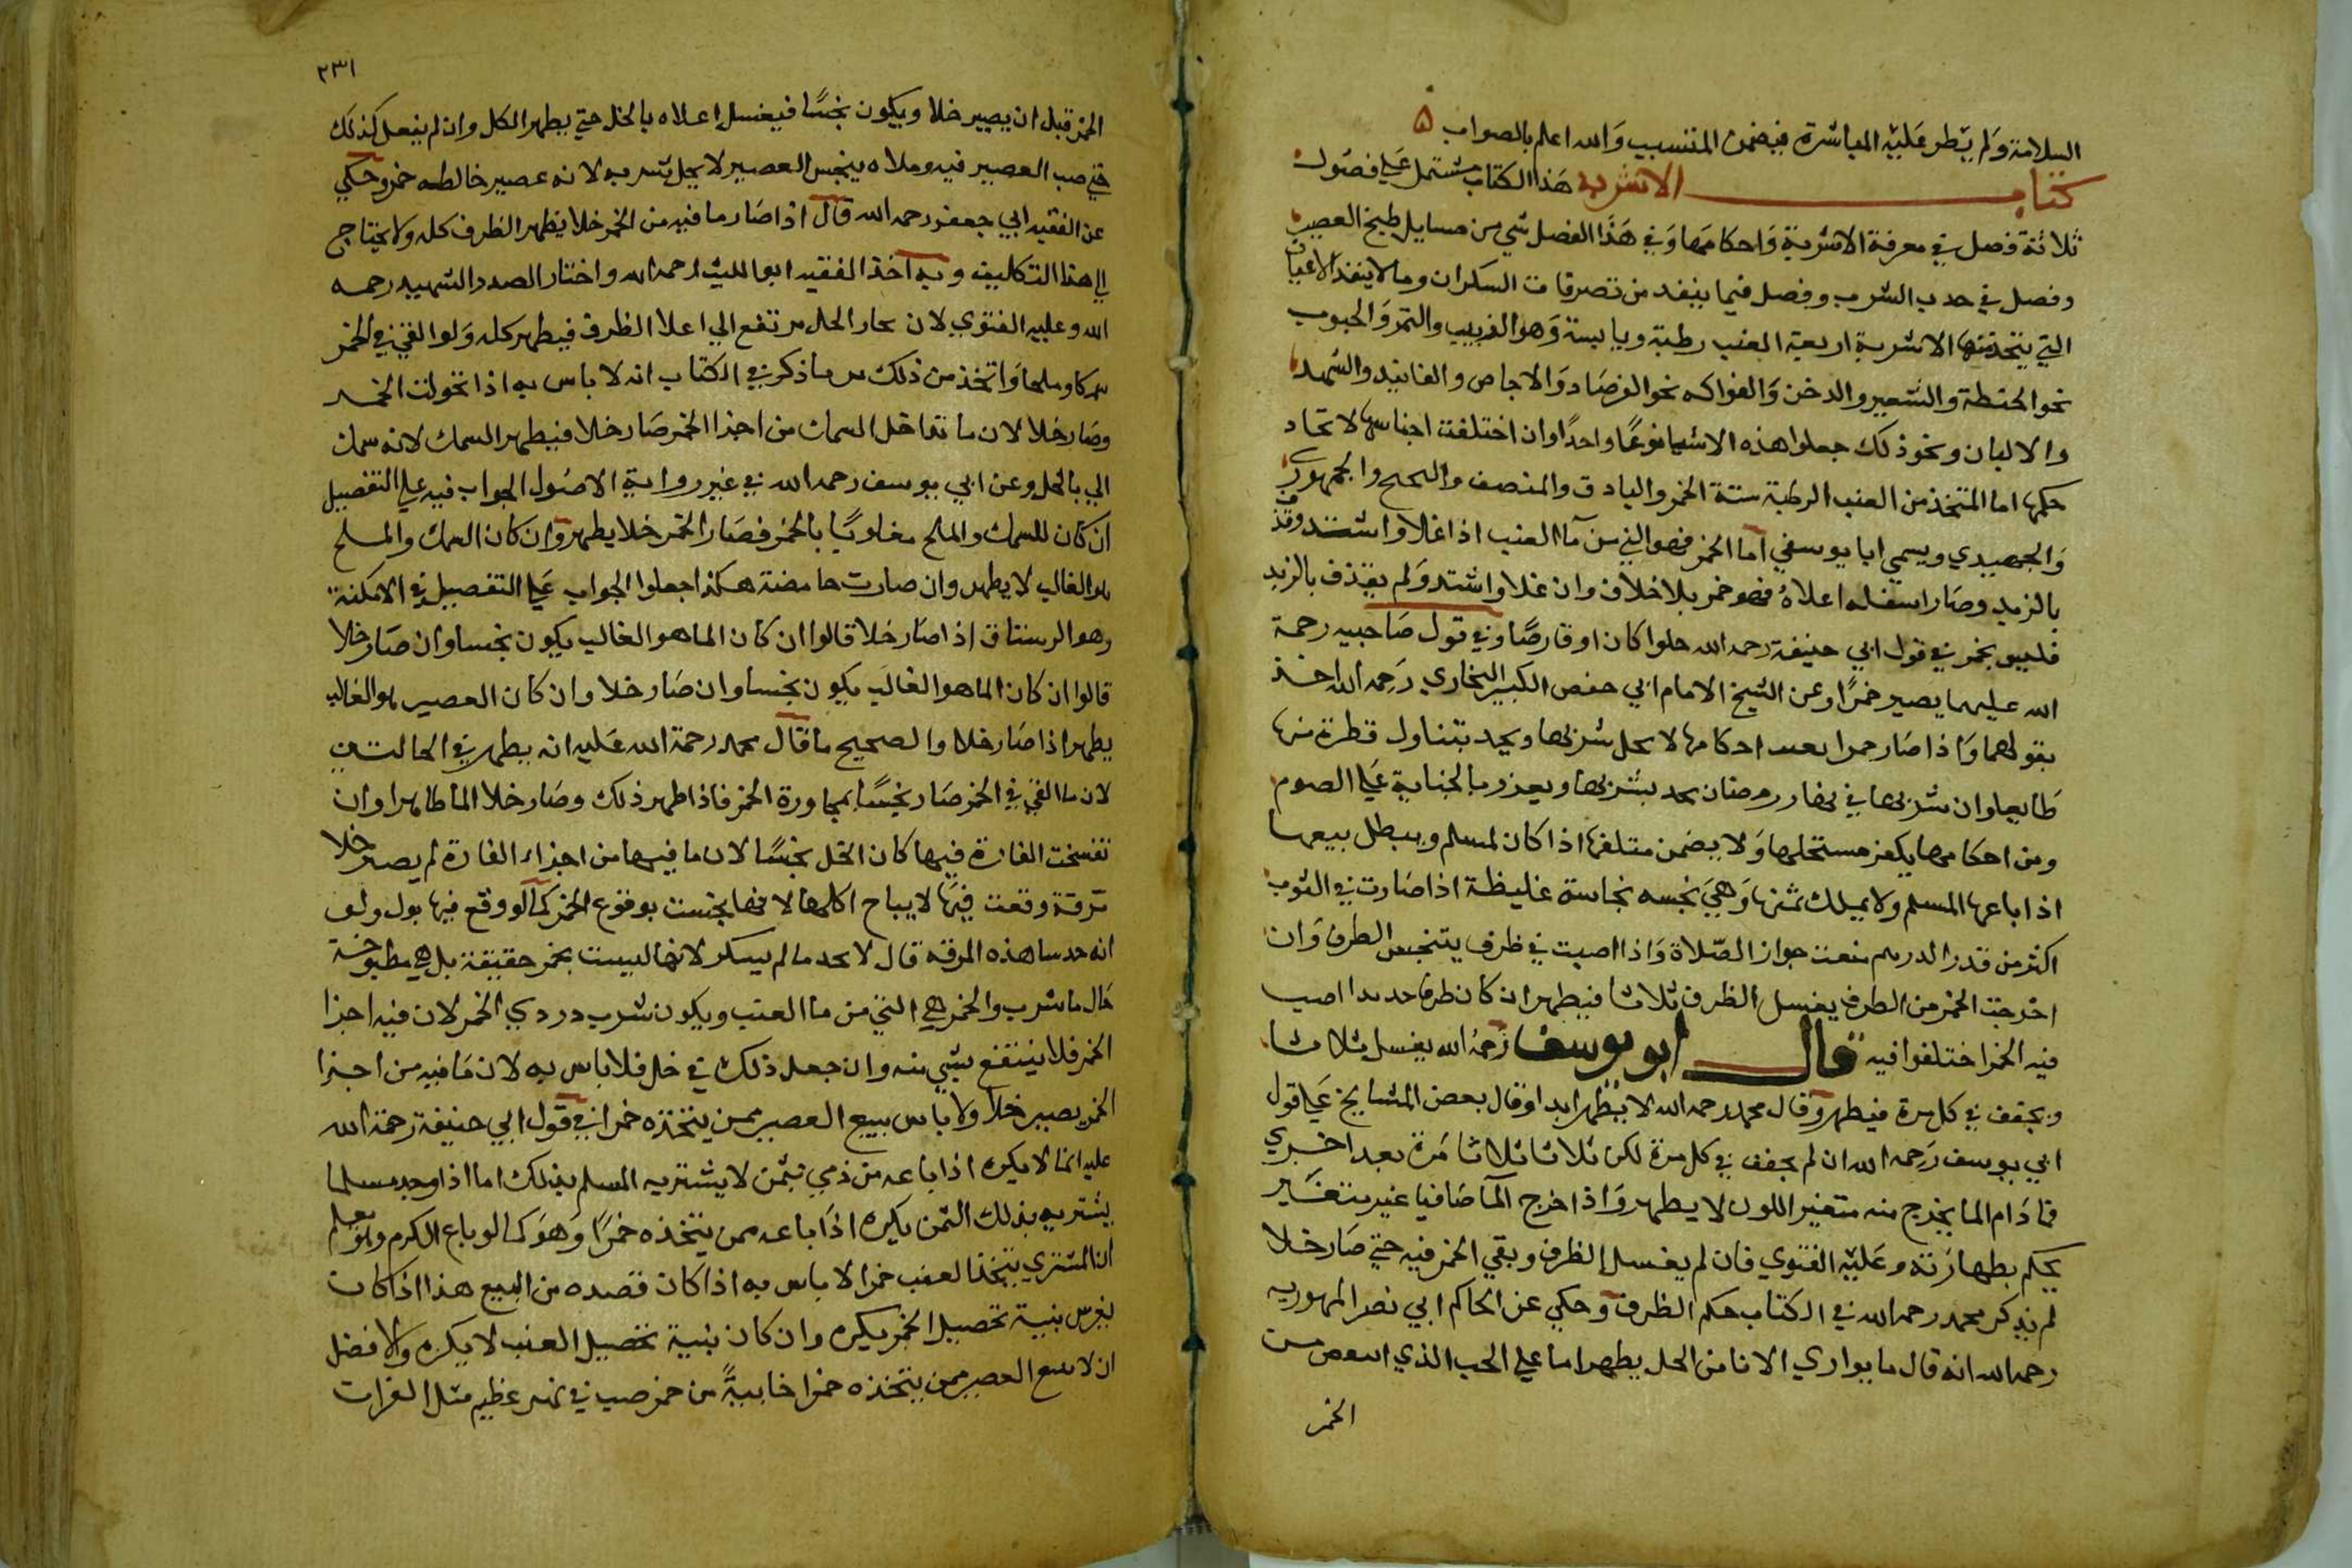 السلامة وَلم يَطر عَليْه المباشرة فيضمن المتسبب وَالله اعلم بالصواب ۵
كتاب الاشربه هَذا الكتاب مشتمل عَلي فصُول
ثلاثة فصل في معرفة الاشربة وَاحكامهَا وَفي هَذا الفصل شي من مسايل طبخ العصير
وفصل في حد الشرب وفصل فيما ينفد من تصرفات السكران وما لا ينفذ الاعيان
التي يتخذ منها الاشربة اربعة العنب رطبة ويابسة وَهو الزبيب والتمر وَالحبوب
نحو الحنطة والشعير والدخن وَالفواكه نحو الفرصَاد وَالاجاص والفانيد والشهد
والالبان ونحو ذلك جعلوا هذه الاشيا نوعًا واحدًا وان اختلفت اجناسها لاتحاد
حكمها اما المتخذ من العنب الرطبة ستة الخمر والبادق والمنصف والبختج والجمهوري
وَالحميدي ويسمي ابا يوسفي اما الخمر فهو الني من مآ العنب اذا غلا واشتد وقذف
بالزبد وصَار اسفله اعلاهُ فهو خمر بلا خلاف وان غلا واشتد وَلم يقذف بالزبد
فليس بخمر في قول ابي حنيفة رحمه الله حلوا كان او قارصًا وفي قول صَاحبيه رحمة
الله عليهما يصير خمرًا وعن الشيخ الامام ابي حفص الكبير البخاري رَحمه الله اخذ
بقولهما وَاذا صَار خمرا بعد احكامها لا يحل شربها ويحد بتناول قطرة منها
طَايعا وان شربها في نهار رمضان يحد بشربها ويعزر بالجناية عَلي الصوم
ومن احكامها يكفر مستحلها وَلا يضمن متلفها اذا كان لمسلم ويبطل بيعها
اذا باعها المسلم ولا يملك ثمنها وَهيَ نجسه نجاسة غليظة اذا صَارت في الثوب
اكثر من قدر الدرهم منعت جواز الصّلاة وَاذا اصبت في ظرف يتنجس الظرف وَان
اخرجت الخمر من الظرف يغسل الظرف ثلاثا فيطهر ان كان ظرفا جديدا اصب
فيه الخمر اختلفوا فيه قال ابو يوسف رَحمهُ الله يغسل ثلاثا
ويجفف في كل مرة فيطهر وقال محمد رحمه الله لا يطهر ابدا وقال بعض المشايخ عَلي قول
ابي يوسف رَحمه الله ان لم يجفف في كل مرة لكن ثلاثا ثلاثا مَرة بعد اخري
فمادَام الما يخرج منه متغير اللون لا يطهر وَاذا خرج المآ صَافيا غير متغير
يحكم بطهارته وعَليْه الفتوي فان لم يغسل الظرف وبقي الخمر فيه حتي صَار خلا
لم يذكر محمد رحمه الله في الكتاب حكم الظرف وحكي عن الحاكم ابي نصر المهرويه
رحمه الله انه قال ما يواري الانا من الخل يطهر اما علي الحب الذي انتقص من
الخمر
٢٣١
الخمر قبل ان يصير خلا ويكون نجسًا فيغسل اعلاه بالخل حتي يطهر الكل وان لم يفعل كذلك
حتي صب العصير فيه وملاه ينجس العصير لا يحل شربه لانه عصير خالطه خمر وحكي
عن الفقيه ابي جعفر رحمه الله قال اذا صَار ما فيه من الخمر خلا يطهر الظرف كله ولا يحتاج
الي هذا التكليف وبه اخذ الفقيه ابو الليث رحمه الله واختار الصدر الشهيد رحمه
الله وعليه الفتوي لان بخار الخل مرتفع الي اعلا الظرف فيطهر كله وَلو القي في الخمر
سمكا وملحا وَاتخذ من ذلك مر ما ذكر في الكتاب انه لا باس به اذا تحولت الخمر
وصَار خلا لان ما تداخل السمك من اجزا الخمر صَار خلا فيطهر السمك لانه سمك
الي بالخل وعن ابي يوسف رحمه الله في غير رواية الاصُول الجواب فيه علي التفصيل
ان كان للسمك والملح مغلوبًا بالخمر فصَار الخمر خلا يطهر وان كان السمك والملح
هو الغالب لا يطهر وان صارت حامضة هكذا جعلوا الجواب عَلي التفصيل في الامكنة
وهو الرستاق اذا صَار خلا قالوا ان كان الما هو الغالب يكون نجسا وان صَار خلا
قالوا ان كان الما هو الغالب يكون نجسا وان صَار خلا وان كان العصير هو الغالب
يطهر اذا صَار خلا والصحيح ما قال محمد رحمة الله عَليه انه يطهر في الحالتين
لان ما القي في الخمر صَار نجسًا بمجاورة الخمر فاذا طهر ذلك وصَار خلا الما طاهرا وان
تفسخت الفارة فيها كان الخل نجسًا لان ما فيها من اجزاء الفارة لم يصر خلا
مرقة وقعت فيهَا لا يباح اكلها لانها نجست بوقوع الخمر كما لو وقع فيها بول ولو
انه حسا هذه المرقه قال لا يحد ما لم يسكر لانها ليست بخمر حقيقة بل هي مطبوخة
حَال ما شرب والخمر هي الني من ما العنب ويكون شرب دردي الخمر لان فيه اجزا
الخمر فلا ينتفع بشي منه وان جعل ذلك في خل فلا باس به لان مَا فيه من اجزا
الخمر يصير خلا ولا باس ببيع العصير ممن يتخذه خمرا في قول ابي حنيفة رحمة الله
عليه انما لا يكره اذا باعه من ذمي بثمن لا يشتريه المسلم بذلك اما اذا وجد مسلما
يشتريه بذلك الثمن يكره اذَا باعه ممن يتخذه خمرًا وَهوَ كما لو باع الكرم وهو يعلم
ان المشتري يتخذ العنب خمرا لا باس به اذا كان قصده من البيع هذا اذا كان
يغرس بنية تحصيل الخمر يكره وان كان بنية تحصيل العنب لا يكره والافضل
ان لا يبيع العصير ممن يتخذه خمرا خابيةً من خمر صب في نهر عظيم مثل الفرات